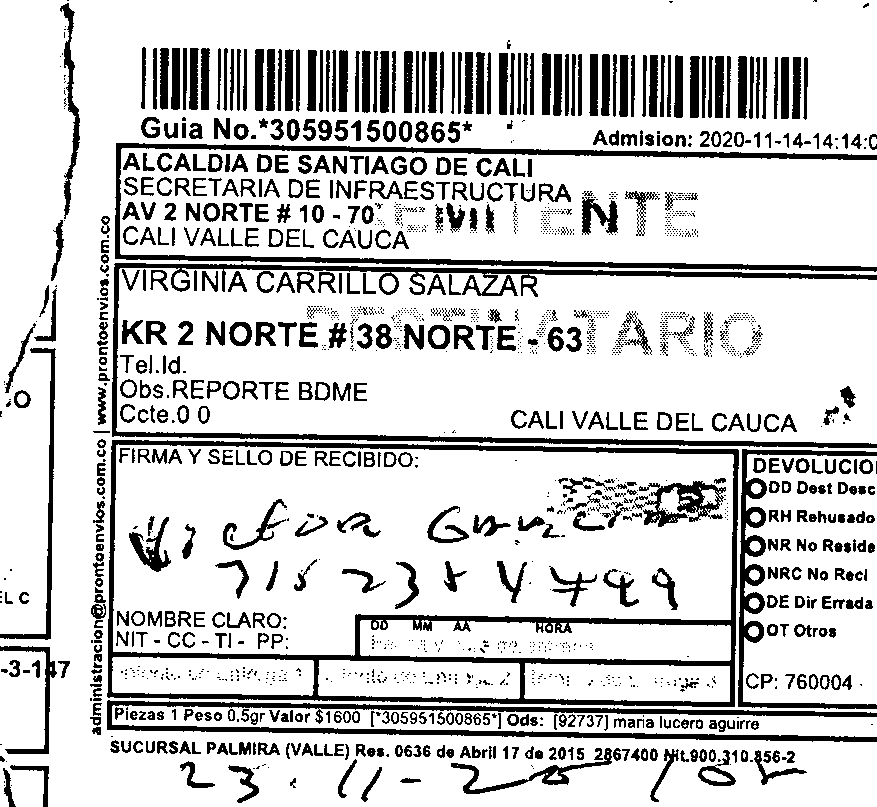 Guia No.*305951500865*
Admision: 2020-11-14-14:14:0
ALCALDIA DE SANTIAGO DE CALI
SECRETARIA DE INFRAESTRUCTURA
AV 2 NORTE # 10 - 70
REMITENTE
CALI VALLE DEL CAUCA
VIRGINIA CARRILLO SALAZAR
DESTINATARIO
KR 2 NORTE # 38 NORTE - 63
Tel.Id.
Obs.REPORTE BDME
Ccte.0 0
CALI VALLE DEL CAUCA
administracion@prontoenvios.com.co | www.prontoenvios.com.co
FIRMA Y SELLO DE RECIBIDO:
Victor
NOMBRE CLARO:
NIT - CC - TI - PP:
DD MM AA HORA
DEVOLUCIO
DD Dest Desc
RH Rehusado
NR No Reside
NRC No Recl
DE Dir Errada
OT Otros
CP: 760004 -
Piezas 1 Peso 0.5gr Valor $1600 [*305951500865*] Ods: [92737] maria lucero aguirre
SUCURSAL PALMIRA (VALLE) Res. 0636 de Abril 17 de 2015 2867400 Nit.900.310.856-2
23-11-20
O
EL C
-3-147